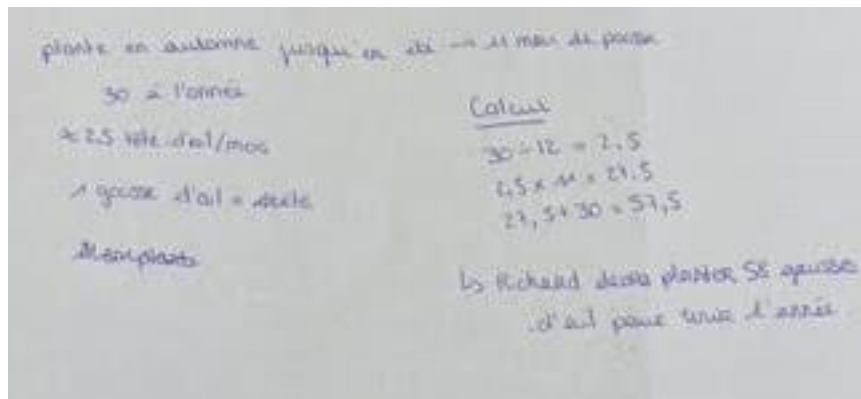 plante en automne jusqu'en été → 11 mois de pousse
30 à l'année
≈ 2.5 tête d'ail/mois
1 gousse d'ail =
Calcul
30 ÷ 12 = 2.5
2,5 × 11 = 27.5
27,5 + 30 = 57,5
↳ Richard devra planter 58 gousse
d'ail pour tenir l'année